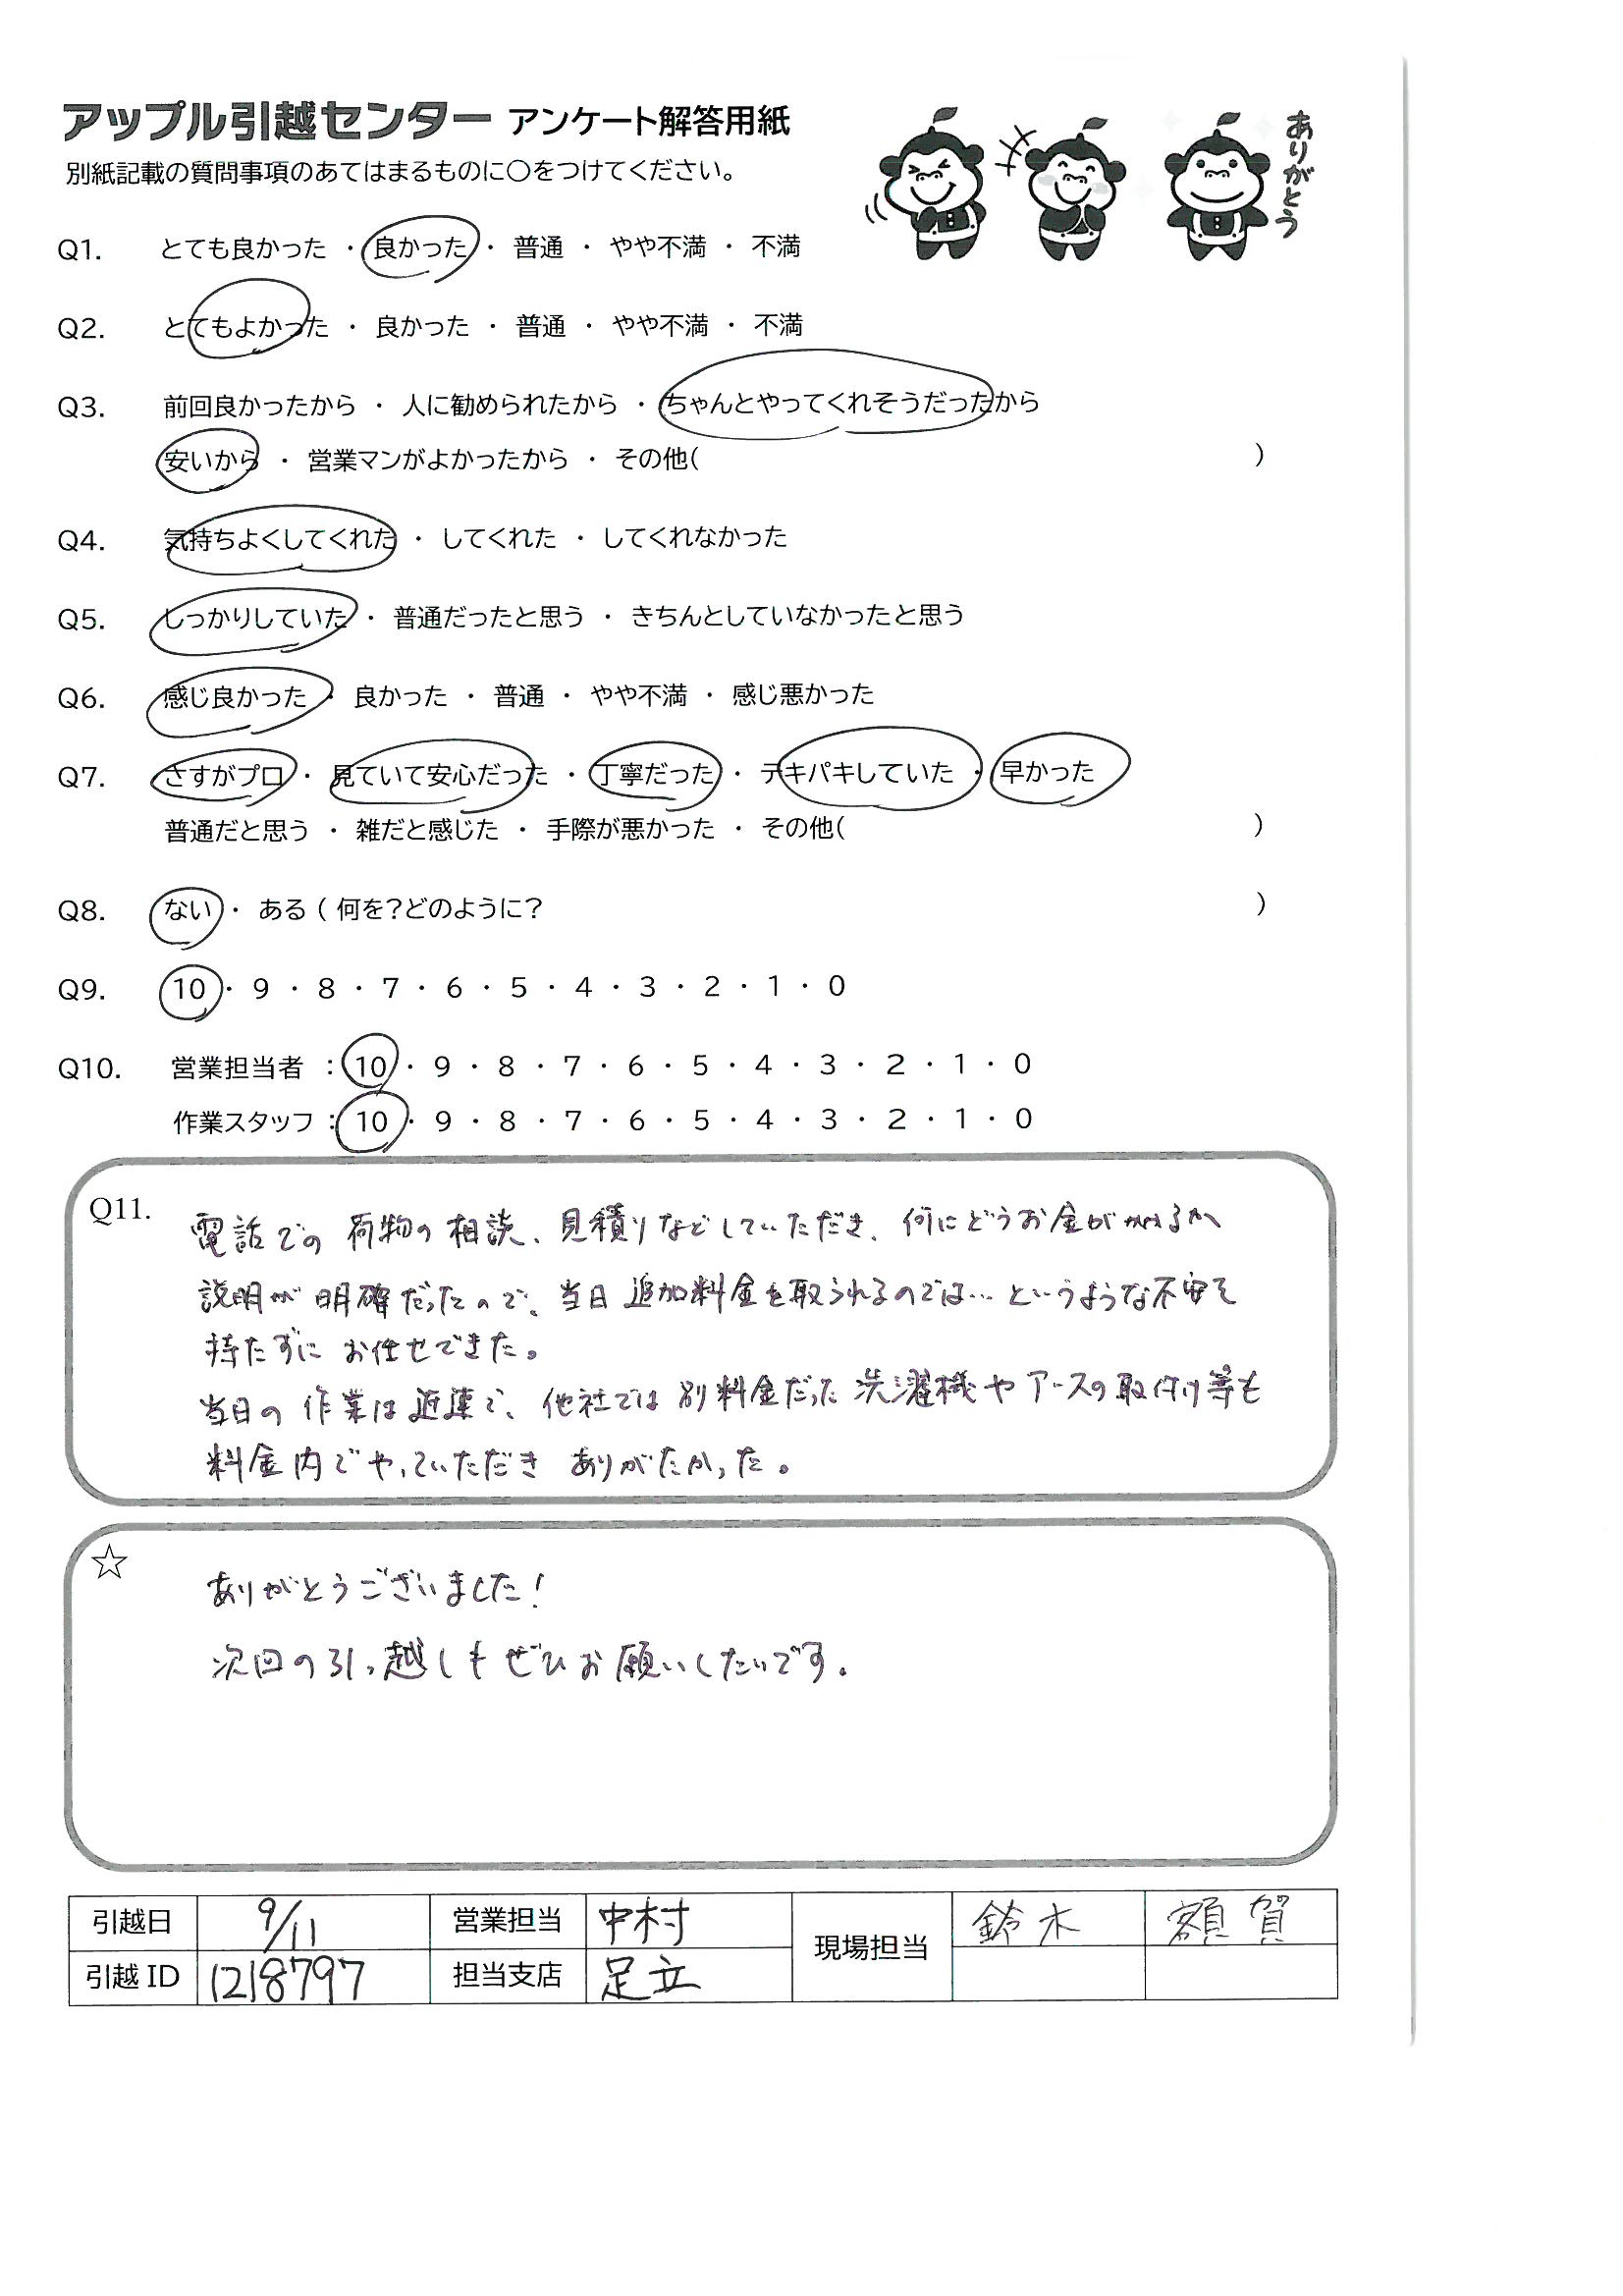 アップル引越センター アンケート解答用紙
別紙記載の質問事項のあてはまるものに〇をつけてください。
ありがとう
Q1. とても良かった ・ 良かった ・ 普通 ・ やや不満 ・ 不満
Q2. とてもよかった ・ 良かった ・ 普通 ・ やや不満 ・ 不満
Q3. 前回良かったから ・ 人に勧められたから ・ ちゃんとやってくれそうだったから
安いから ・ 営業マンがよかったから ・ その他( )
Q4. 気持ちよくしてくれた ・ してくれた ・ してくれなかった
Q5. しっかりしていた ・ 普通だったと思う ・ きちんとしていなかったと思う
Q6. 感じ良かった ・ 良かった ・ 普通 ・ やや不満 ・ 感じ悪かった
Q7. さすがプロ ・ 見ていて安心だった ・ 丁寧だった ・ テキパキしていた ・ 早かった
普通だと思う ・ 雑だと感じた ・ 手際が悪かった ・ その他( )
Q8. ない ・ ある ( 何を?どのように? )
Q9. 10 ・ 9 ・ 8 ・ 7 ・ 6 ・ 5 ・ 4 ・ 3 ・ 2 ・ 1 ・ 0
Q10. 営業担当者 : 10 ・ 9 ・ 8 ・ 7 ・ 6 ・ 5 ・ 4 ・ 3 ・ 2 ・ 1 ・ 0
作業スタッフ : 10 ・ 9 ・ 8 ・ 7 ・ 6 ・ 5 ・ 4 ・ 3 ・ 2 ・ 1 ・ 0
Q11. 電話での荷物の相談、見積りなどしていただき、何にどうお金がかかるか
説明が明確だったので、当日追加料金を取られるのでは…というような不安を
持たずにお任せできた。
当日の作業は迅速で、他社では別料金だった洗濯機やアースの取付け等も
料金内でやっていただきありがたかった。
☆ ありがとうございました!
次回の引っ越しもぜひお願いしたいです。
引越日 9/11 営業担当 中村 現場担当 鈴木 額賀
引越ID 1218797 担当支店 足立